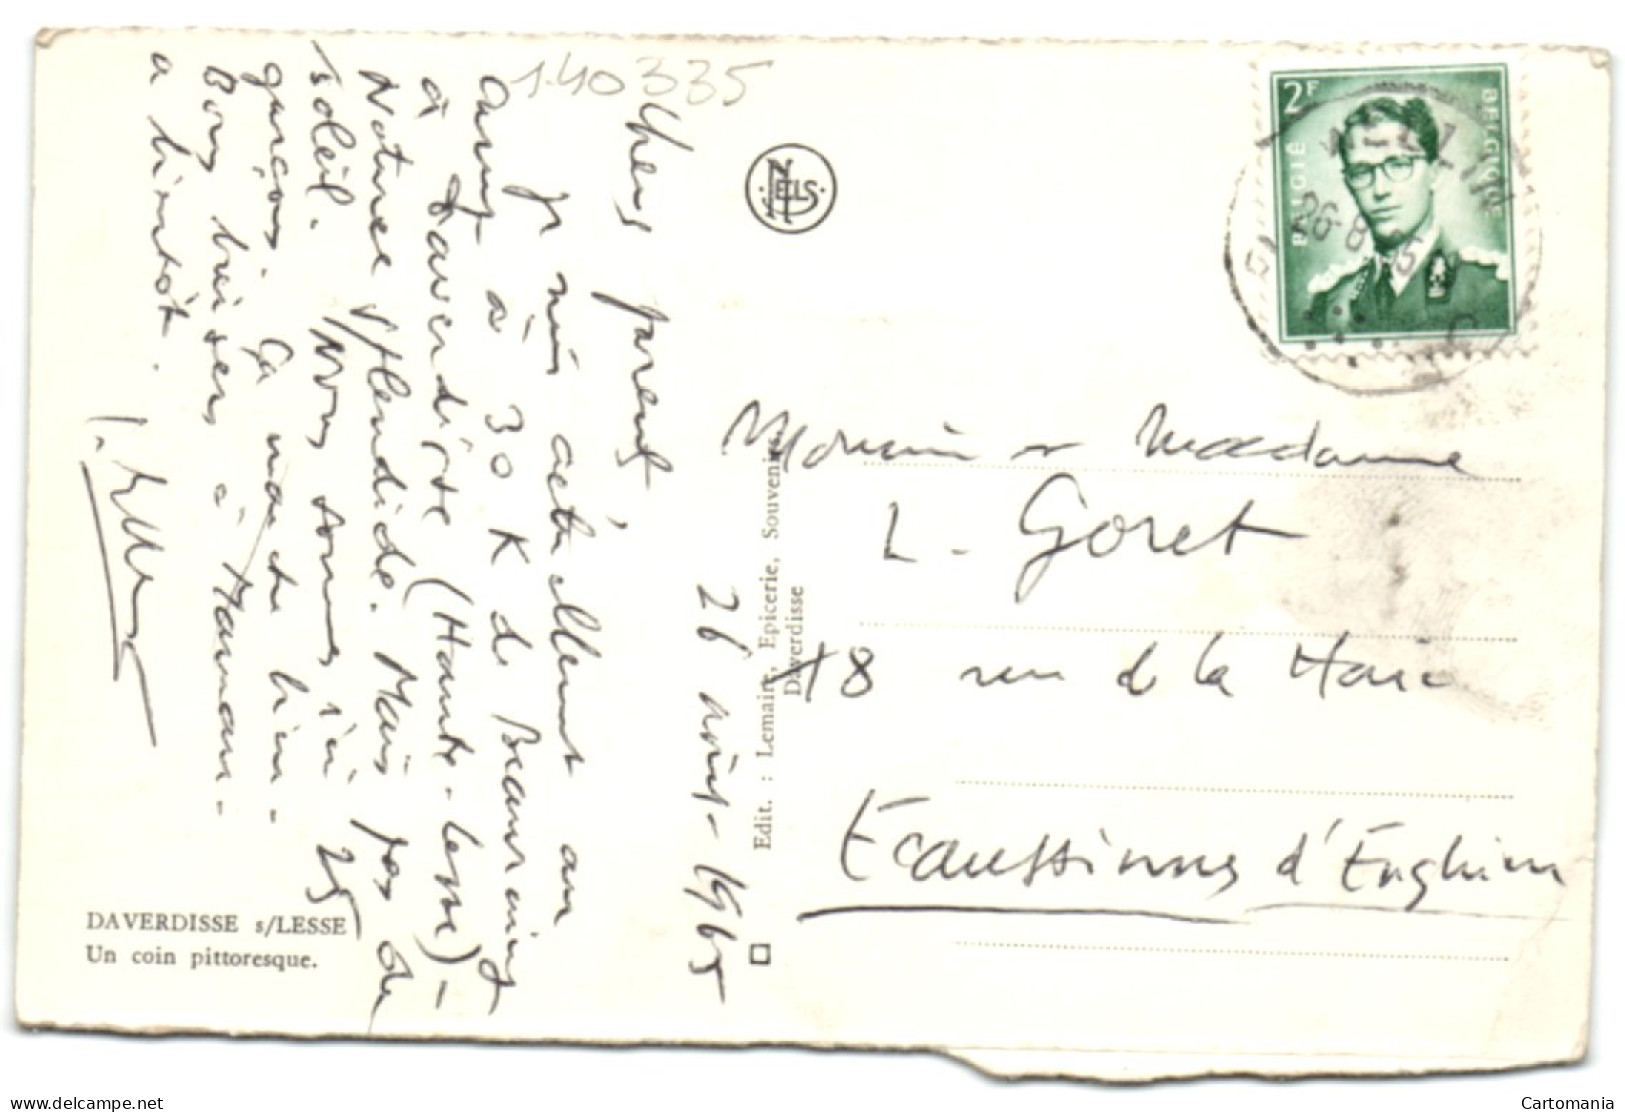 140335
Chers parents,
26 août 1965
Je suis actuellement au
camp à 30 K de Beauraing
à Daverdisse (Haute-Lesse) -
Nature splendide. Mais pas de
soleil. Nous sommes ici 25
garçons. Ça marche bien -
Bons baisers à Maman -
à bientôt.
DAVERDISSE s/LESSE
Un coin pittoresque.
NELS
Edit. : Lemaire, Epicerie, Souvenirs,
Daverdisse
2F
BELGIË
BELGIQUE
WELLIN
26-8
Monsieur & Madame
L. Goret
18 rue de la Haie
Ecaussinnes d'Enghien
www.delcampe.net
Cartomania